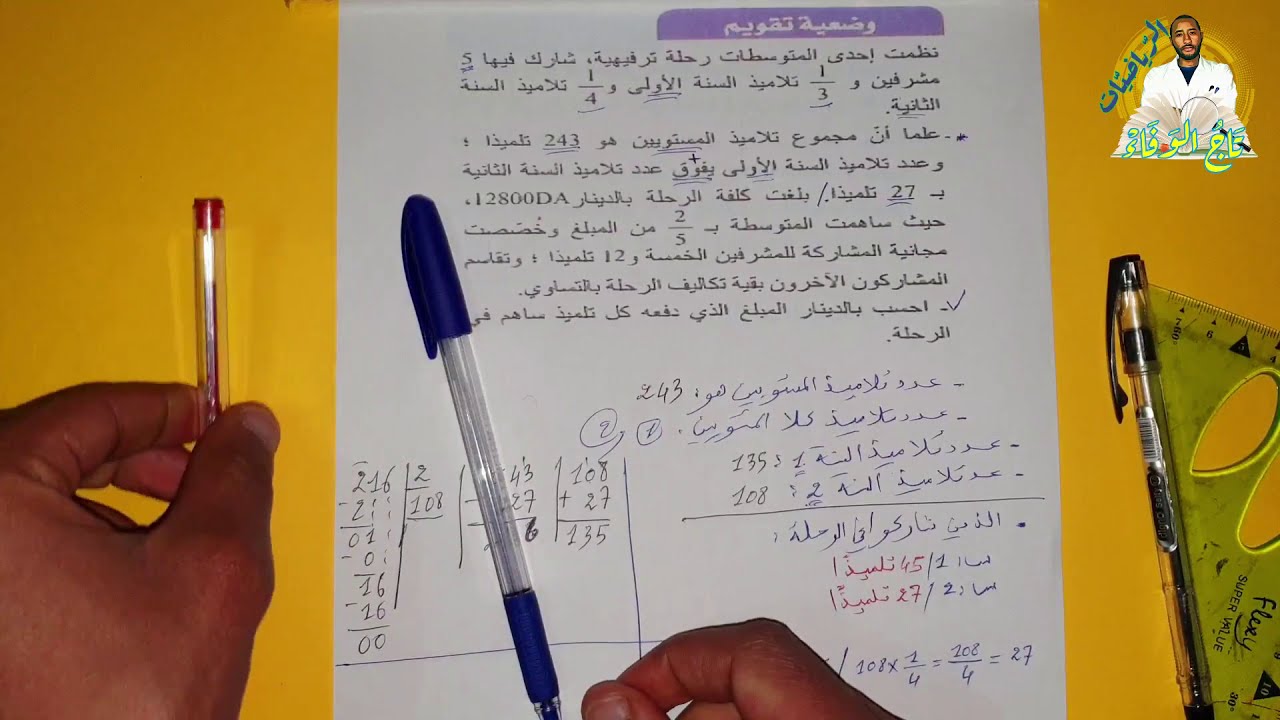 وضعية تقويم
نظمت إحدى المتوسطات رحلة ترفيهية، شارك فيها 5
مشرفين و 1/3 تلاميذ السنة الأولى و 1/4 تلاميذ السنة
الثانية.
- علما أنّ مجموع تلاميذ المستويين هو 243 تلميذا ؛
وعدد تلاميذ السنة الأولى يفوق عدد تلاميذ السنة الثانية
+
بـ 27 تلميذا. / بلغت كلفة الرحلة بالدينار 12800DA،
حيث ساهمت المتوسطة بـ 2/5 من المبلغ وخُصّصت
مجانية المشاركة للمشرفين الخمسة و 12 تلميذا ؛ وتقاسم
المشاركون الآخرون بقية تكاليف الرحلة بالتساوي.
- احسب بالدينار المبلغ الذي دفعه كل تلميذ ساهم في
الرحلة.
- عدد تلاميذ المستويين هو: 243
- عدد تلاميذ كلا المستويين. 1 و 2
- عدد تلاميذ السنة 1: 135
- عدد تلاميذ السنة 2: 108
• الذين شاركوا في الرحلة:
سنة 1 / 45 تلميذًا
سنة 2 / 27 تلميذًا
/ 108 × 1/4 = 108/4 = 27
216 | 2
- 2 | 108
01
- 0
16
- 16
00
43
27
6
108
+ 27
135
الرياضيات
تاج الوفاء
Flexy
SUPER VALUE